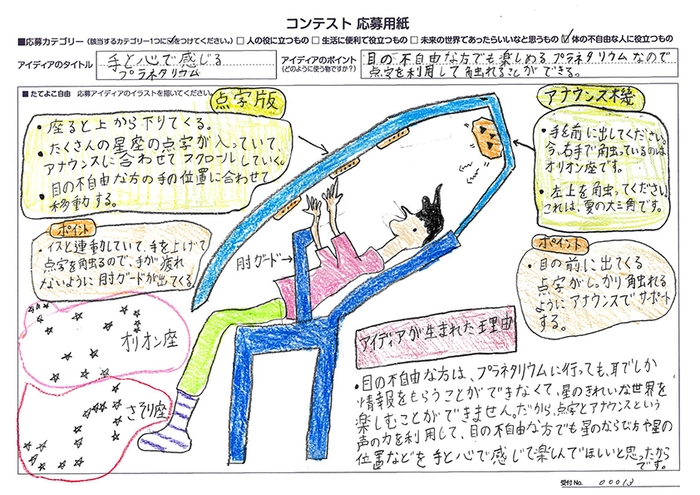 コンテスト 応募用紙
■応募カテゴリー (該当するカテゴリー1つに☑をつけてください。) □ 人の役に立つもの □ 生活に便利で役立つもの □ 未来の世界であったらいいなと思うもの ☑ 体の不自由な人に役立つもの
アイディアのタイトル
手と心で感じる
プラネタリウム
アイディアのポイント
(どのように使う物ですか?)
目の不自由な方でも楽しめるプラネタリウムなので
点字を利用して触れることができる。
■たてよこ自由 応募アイディアのイラストを描いてください
点字版
・座ると上から下りてくる。
・たくさんの星座の点字が入っていて、
アナウンスに合わせてスクロールしていく。
・目の不自由な方の手の位置に合わせて
移動する。
ポイント
・イスと連動していて、手を上げて
点字を触るので、手が疲れ
ないように肘ガードが出てくる
肘ガード
オリオン座
さそり座
アナウンス機
・手を前に出してください。
今、右手で触っているのは
オリオン座です。
・左上を触ってください。
これは、夏の大三角です。
ポイント
・目の前に出てくる
点字がしっかり触れる
ようにアナウンスでサポート
する。
アイディアが生まれた理由
・目の不自由な方は、プラネタリウムに行っても、耳でしか
情報をもらうことができなくて、星のきれいな世界を
楽しむことができません。だから、点字とアナウンスという
声の力を利用して、目の不自由な方でも星のならび方や星の
位置などを手と心で感じて楽しんでほしいと思ったから
です。
受付No. 00013